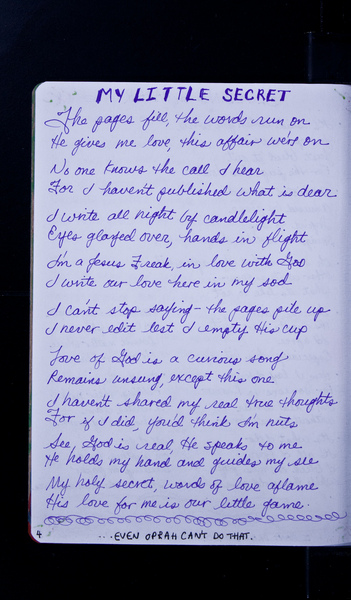 MY LITTLE SECRET
The pages fill, the words run on
He gives me love, this affair we're on
No one knows the call I hear
For I haven't published what is dear
I write all night by candlelight
Eyes glazed over, hands in flight
I'm a Jesus Freak, in love with God
I write our love here in my sod
I can't stop saying - the pages pile up
I never edit lest I empty His cup
Love of God is a curious song
Remains unsung, except this one
I haven't shared my real true thoughts
For if I did, you'd think I'm nuts
See, God is real, He speaks to me
He holds my hand and guides my
My holy secret, words of love aflame
His love for me is our little game.
4 ...EVEN OPRAH CAN'T DO THAT.